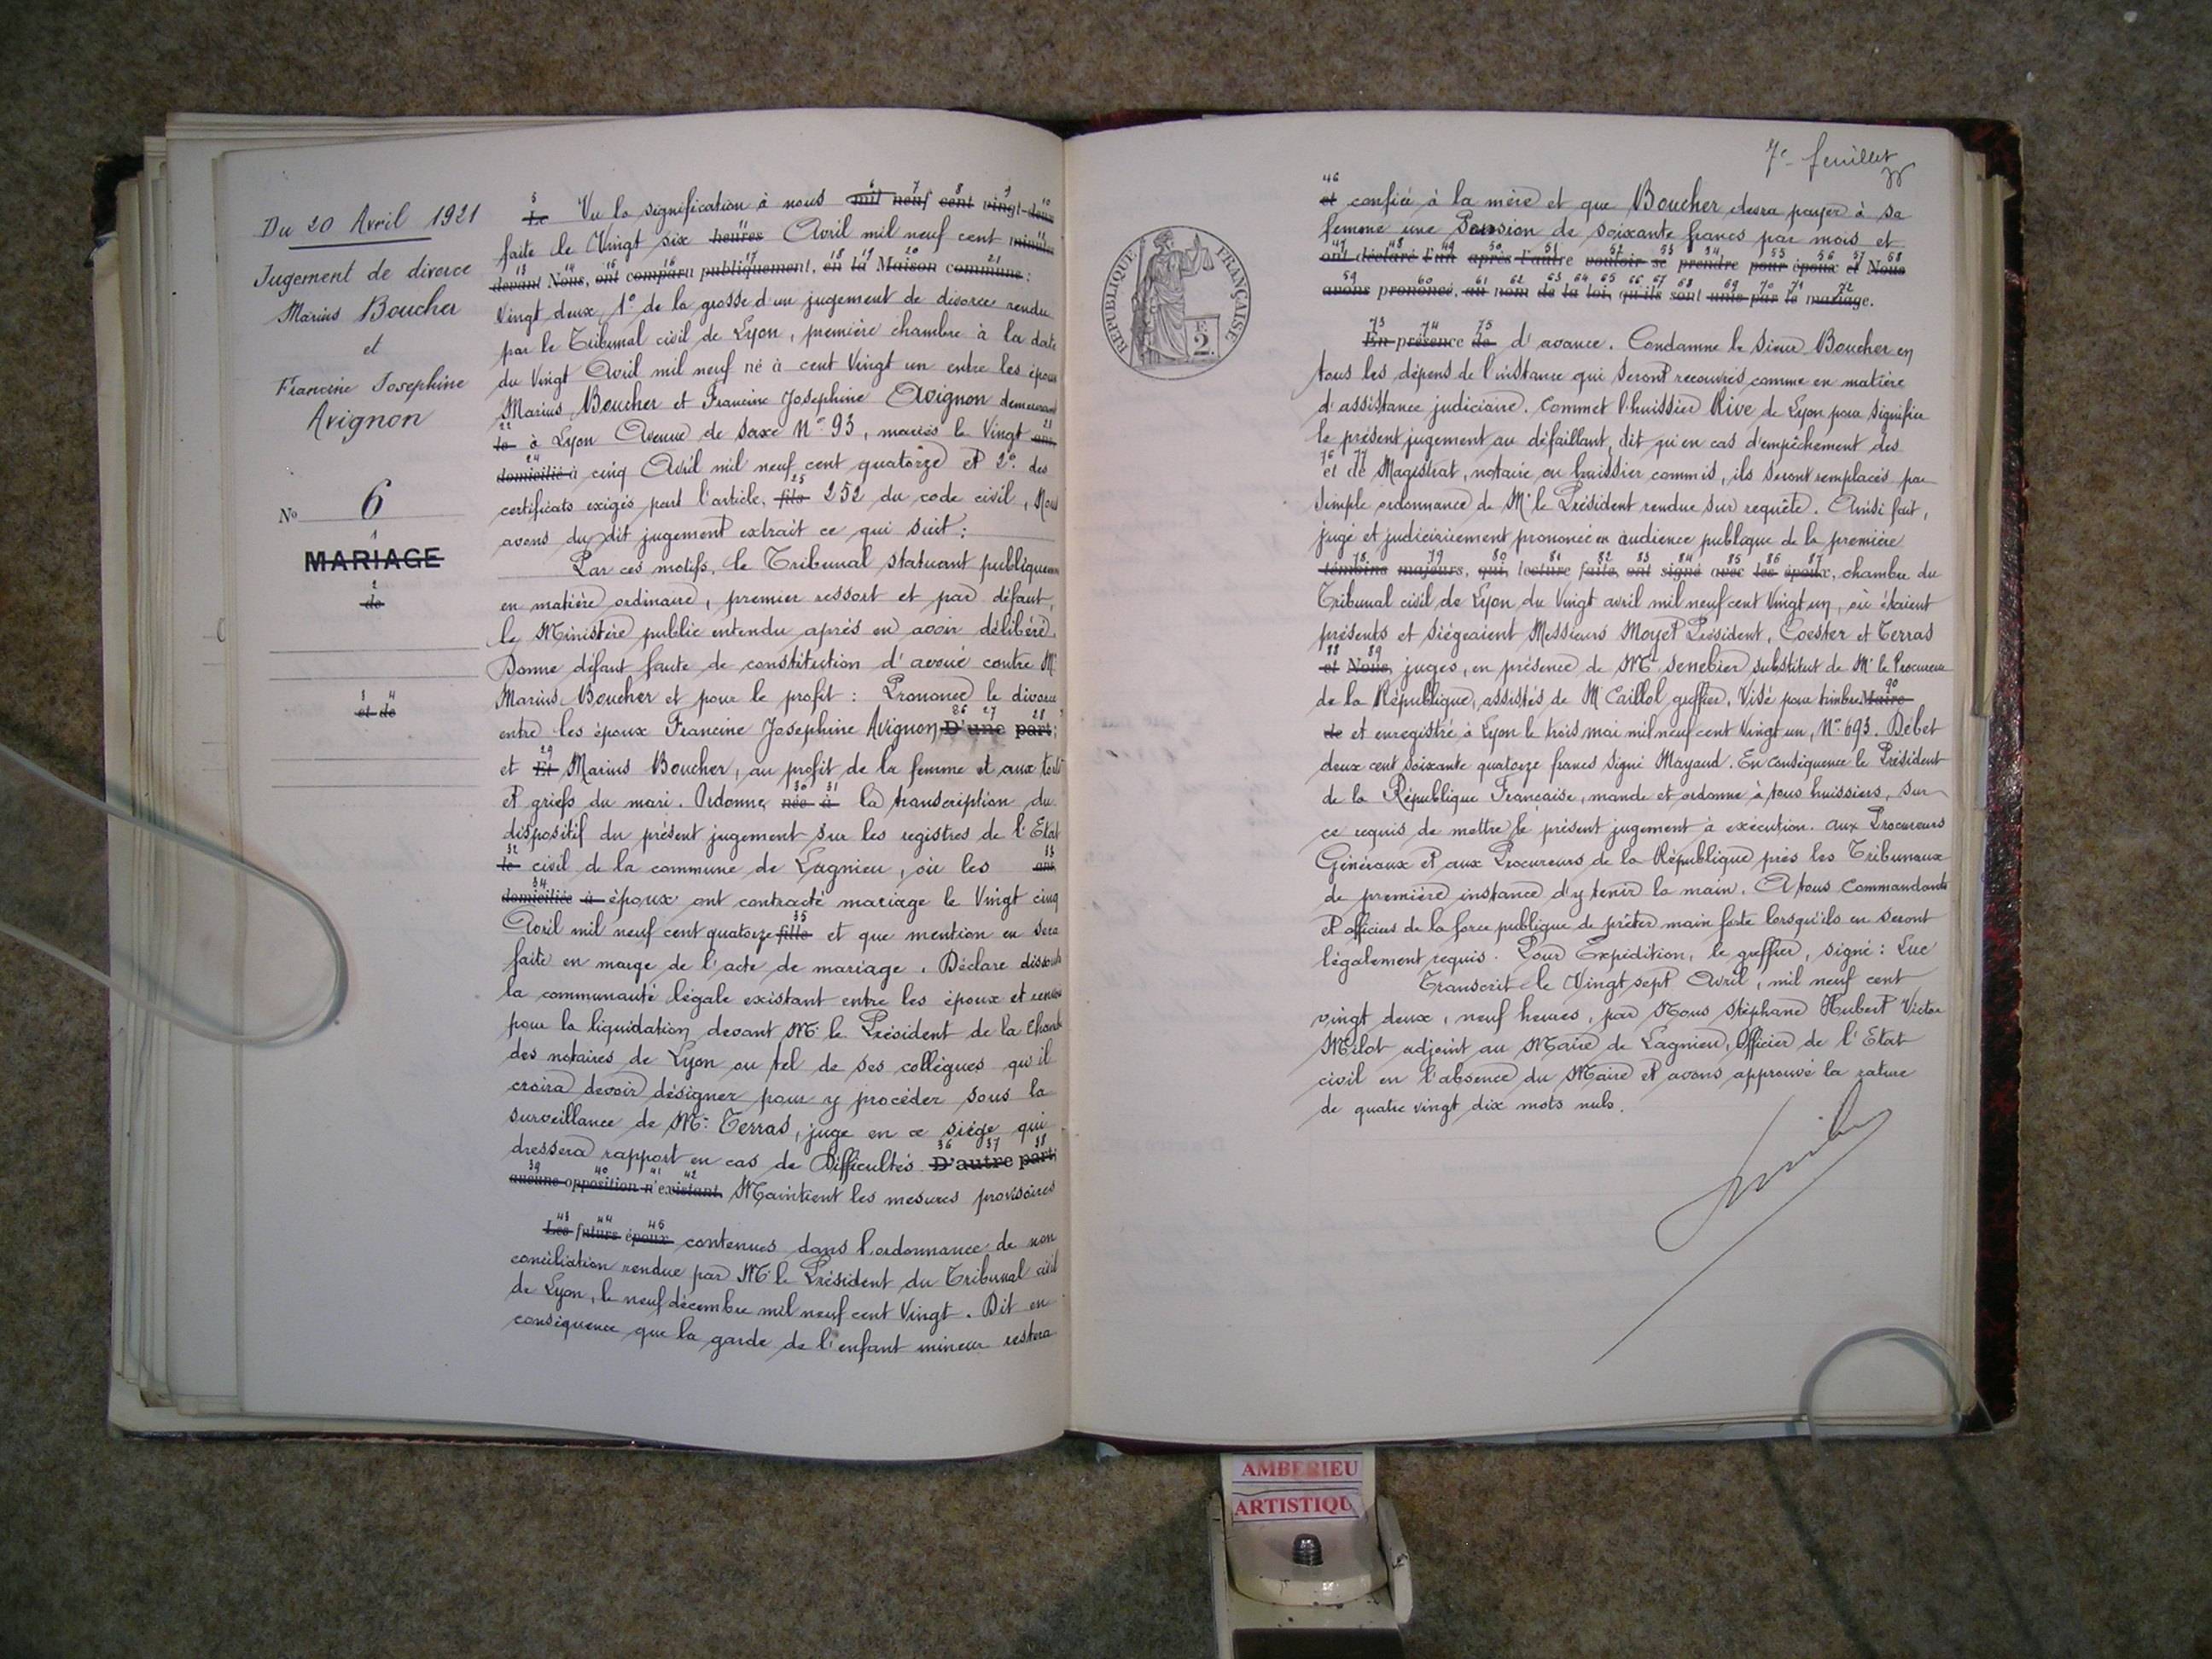 Du 20 Avril 1921
Jugement de divorce
Marius Boucher
et
Francine Josephine
Avignon
No 6
1
MARIAGE
2
de
3 4
et de
5 6 7 8 9 10
Le Vu la signification à nous mil neuf cent vingt-deux
11
faite le Vingt six heures Avril mil neuf cent minutes
13 14 15 16 17 18 19 20 21
devant Nous, ont comparu publiquement, en la Maison commune:
Vingt deux, 1º de la grosse d'un jugement de divorce rendu
par le Tribunal civil de Lyon, première chambre à la date
du Vingt Avril mil neuf né à cent Vingt un entre les époux
Marius Boucher et Francine Josephine Avignon demeurant
22
le à Lyon Avenue de Saxe Nº 93, mariés le Vingt ans,
24
domicilié à cinq Avril mil neuf cent quatorze et 2º des
25
certificats exigés part l'article, fils 252 du code civil, Nous
avons du dit jugement extrait ce qui suit:
Par ces motifs, le Tribunal statuant publiquement
en matière ordinaire, premier ressort et par défaut,
le Ministère public entendu après en avoir délibéré.
Donne défaut faute de constitution d'avoué contre Mr
Marius Boucher et pour le profit: Prononce le divorce
26 27 28
entre les époux Francine Josephine Avignon D'une part;
29
et Et Marius Boucher, au profit de la femme et aux torts
30 31
et griefs du mari. Ordonne née à la transcription du
dispositif du présent jugement sur les registres de l'Etat
32 33
le civil de la commune de Lagnieu, où les ans,
34
domiciliée à époux ont contracté mariage le Vingt cinq
35
Avril mil neuf cent quatorze fille et que mention en sera
faite en marge de l'acte de mariage. Déclare dissoute
la communauté légale existant entre les époux et renvoie
pour la liquidation devant Mr le Président de la Chambre
des notaires de Lyon ou tel de ses collègues qu'il
croira devoir désigner pour y procéder sous la
surveillance de Mr Terras, juge en ce siège qui
36 37 38
dressera rapport en cas de Difficultés D'autre part;
39 40 41 42
aucune opposition n'existant, Maintient les mesures provisoires
43 44 45
Les futurs époux contenues dans l'ordonnance de non
conciliation rendue par Mr le Président du Tribunal civil
de Lyon, le neuf décembre mil neuf cent Vingt. Dit en
conséquence que la garde de l'enfant mineur restera
7e feuillet
RÉPUBLIQUE FRANÇAISE
E.
2.
46
et confiée à la mère et que Boucher devra payer à sa
femme une Pension de soixante francs par mois et
47 48 49 50 51 52 53 54 55 56 57 58
ont déclaré l'un après l'autre vouloir se prendre pour époux et Nous
59 60 61 62 63 64 65 66 67 68 69 70 71 72
avons prononcé, au nom de la loi, qu'ils sont unis par le mariage.
73 74 75
En présence de d'avance. Condamne le Sieur Boucher en
tous les dépens de l'instance qui seront recouvrés comme en matière
d'assistance judiciaire. Commet l'huissier Rive de Lyon pour signifier
le présent jugement au défaillant, dit qu'en cas d'empêchement des
76 77
et de Magistrat, notaire ou huissier commis, ils seront remplacés par
simple ordonnance de Mr le Président rendue sur requête. Ainsi fait,
jugé et judiciairement prononcé en audience publique de la première
78 79 80 81 82 83 84 85 86 87
témoins majeurs, qui, lecture faite, ont signé avec les époux, chambre du
Tribunal civil de Lyon du Vingt avril mil neuf cent Vingt un, où étaient
présents et siégeaient Messieurs Moyet Président, Coester et Terras
88 89
et Nous, juges, en présence de Mr Senebier substitut de Mr le Procureur
90
de la République, assistés de Mr Caillol greffier. Visé pour timbre Maire
de et enregistré à Lyon le trois mai mil neuf cent Vingt un, Nº 693. Débet
deux cent soixante quatorze francs signé Mayaud. En conséquence le Président
de la République Française, mande et ordonne à tous huissiers, sur
ce requis de mettre le présent jugement à exécution. aux Procureurs
Généraux et aux Procureurs de la République près les Tribunaux
de première instance d'y tenir la main. A tous Commandants
et officiers de la force publique de prêter main forte lorsqu'ils en seront
légalement requis. Pour Expédition, le greffier, signé: Luc
Transcrit le Vingt sept Avril, mil neuf cent
vingt deux, neuf heures, par Nous Stéphane Hubert Victor
Milot adjoint au Maire de Lagnieu, Officier de l'Etat
civil en l'absence du Maire et avons approuvé la rature
de quatre vingt dix mots nuls.
AMBERIEU
ARTISTIQU